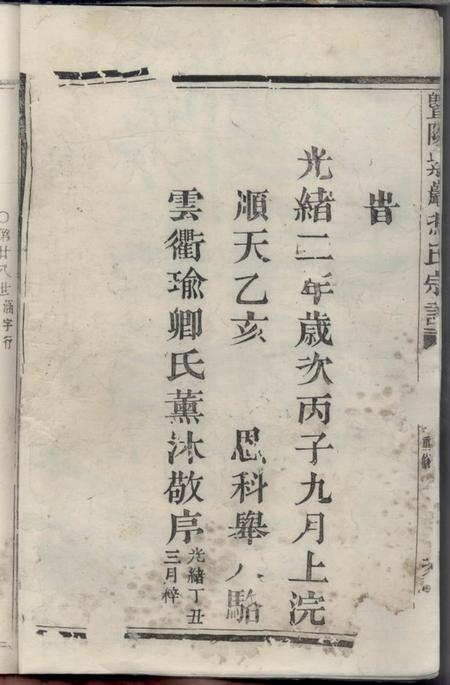 旹
光緒二年歲次丙子九月上浣
順天乙亥 恩科舉人駱
雲衢瑜卿氏薰沐敬序
光緒丁丑
三月梓
氏宗譜
〇第廿八世涌字行